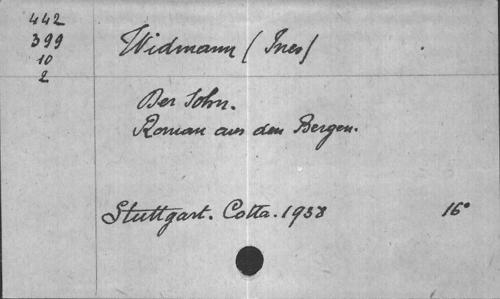 442
399
10
2
Widmann (Ines)
Der Sohn.
Roman aus den Bergen.
Stuttgart. Cotta. 1938
16°